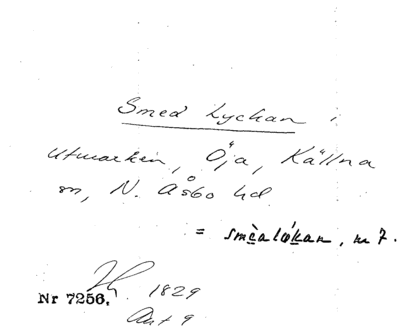 Smed Lychan i
utmarken, Öja, Källna
sn, N. Åsbo hd.
= smèalýkan, nr 7.
1829
Nr 7256.
Akt 9